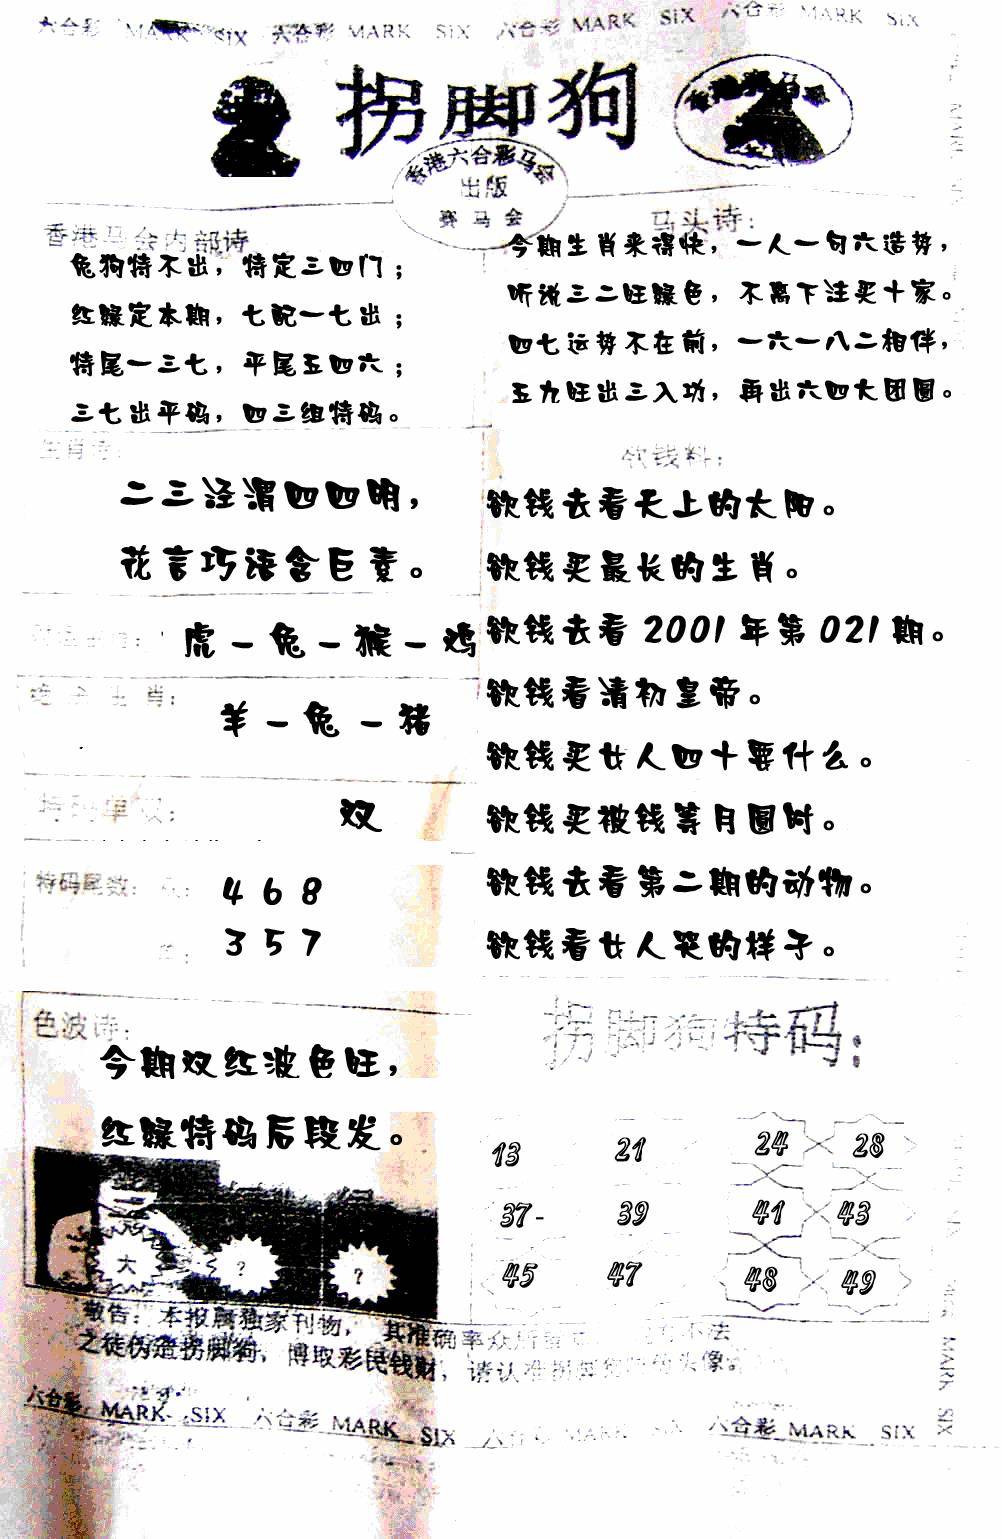 六合彩 MARK SIX 六合彩 MARK SIX 六合彩 MARK SIX 六合彩 MARK SIX
拐脚狗
香港六合彩马会
出版
赛马会
香港马会内部诗
兔狗特不出，特定三四门；
红绿定本期，七配一七出；
特尾一三七，平尾五四六；
三七出平码，四三组特码。
马头诗：
今期生肖来得快，一人一句六造势，
听说三二旺绿色，不离下注买十家。
四七运势不在前，一六一八二相伴，
五九旺出三入功，再出六四大团圆。
生肖诗：
二三泾渭四四明，
花言巧语含巨毒。
虎－兔－猴－鸡
生肖：
羊－兔－猪
特码单双：
双
特码尾数：
4 6 8
3 5 7
欲钱料：
欲钱去看天上的太阳。
欲钱买最长的生肖。
欲钱去看2001年第021期。
欲钱看清初皇帝。
欲钱买女人四十要什么。
欲钱买被钱等月圆时。
欲钱去看第二期的动物。
欲钱看女人哭的样子。
色波诗：
今期双红波色旺，
红绿特码后段发。
大 ? ?
拐脚狗特码：
13 21 24 28
37- 39 41 43
45 47 48 49
敬告：本报属独家刊物，其准确率众所 不法
之徒伪造拐脚狗，博取彩民钱财，请认准拐脚狗 头像。
六合彩 MARK SIX 六合彩 MARK SIX 六合彩 MARK 六合彩 MARK SIX
MARK SIX